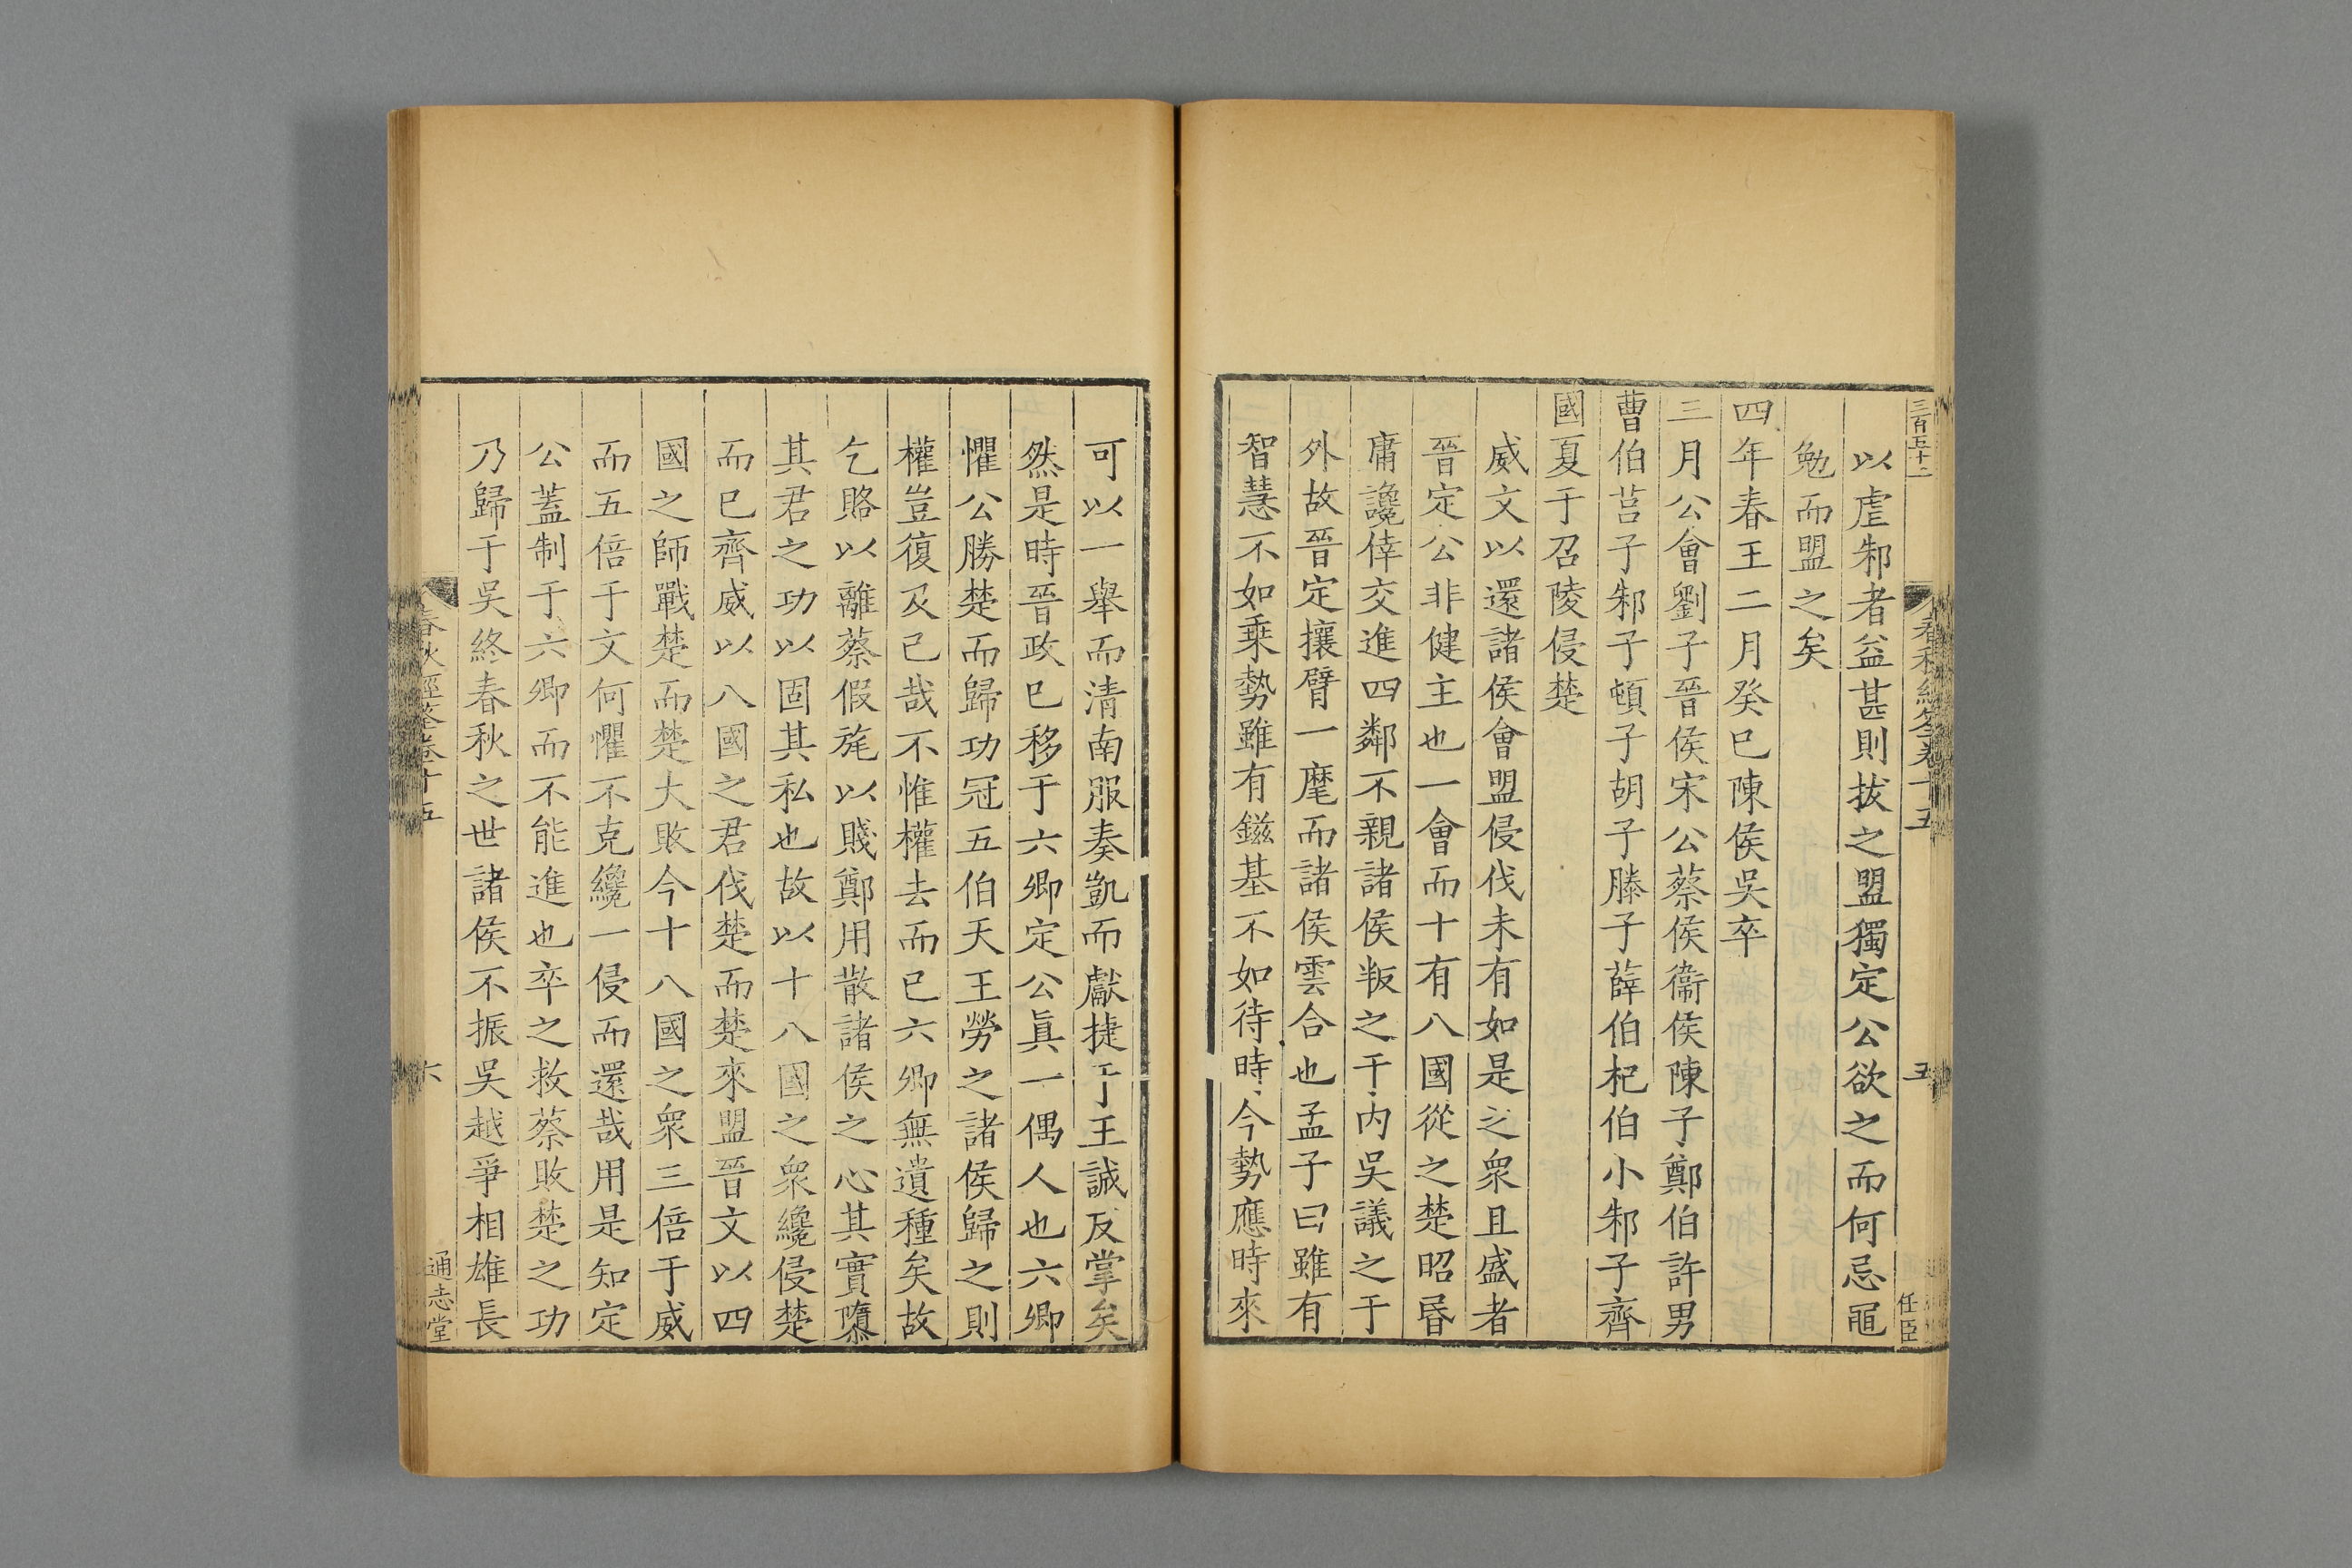 三百五十二
春秋經筌卷十五
五
任臣
以虐邾者益甚則拔之盟獨定公欲之而何忌黽
勉而盟之矣
四年春王二月癸巳陳侯吳卒
三月公會劉子晉侯宋公蔡侯衞侯陳子鄭伯許男
曹伯莒子邾子頓子胡子滕子薛伯杞伯小邾子齊
國夏于召陵侵楚
威文以還諸侯會盟侵伐未有如是之衆且盛者
晉定公非健主也一會而十有八國從之楚昭昏
庸讒倖交進四鄰不親諸侯叛之于內吳議之于
外故晉定攘臂一麾而諸侯雲合也孟子曰雖有
智慧不如乗勢雖有鎡基不如待時今勢應時來
可以一舉而清南服奏凱而獻捷于王誠反掌矣
然是時晉政已移于六卿定公眞一偶人也六卿
懼公勝楚而歸功冠五伯天王勞之諸侯歸之則
權豈復及已哉不惟權去而已六卿無遺種矣故
乞賂以離蔡假旄以賤鄭用散諸侯之心其實隳
其君之功以固其私也故以十八國之衆纔侵楚
而已齊威以八國之君伐楚而楚來盟晉文以四
國之師戰楚而楚大敗今十八國之衆三倍于威
而五倍于文何懼不克纔一侵而還哉用是知定
公蓋制于六卿而不能進也卒之救蔡敗楚之功
乃歸于吳終春秋之世諸侯不振吳越爭相雄長
春秋經筌卷十五
六
通志堂